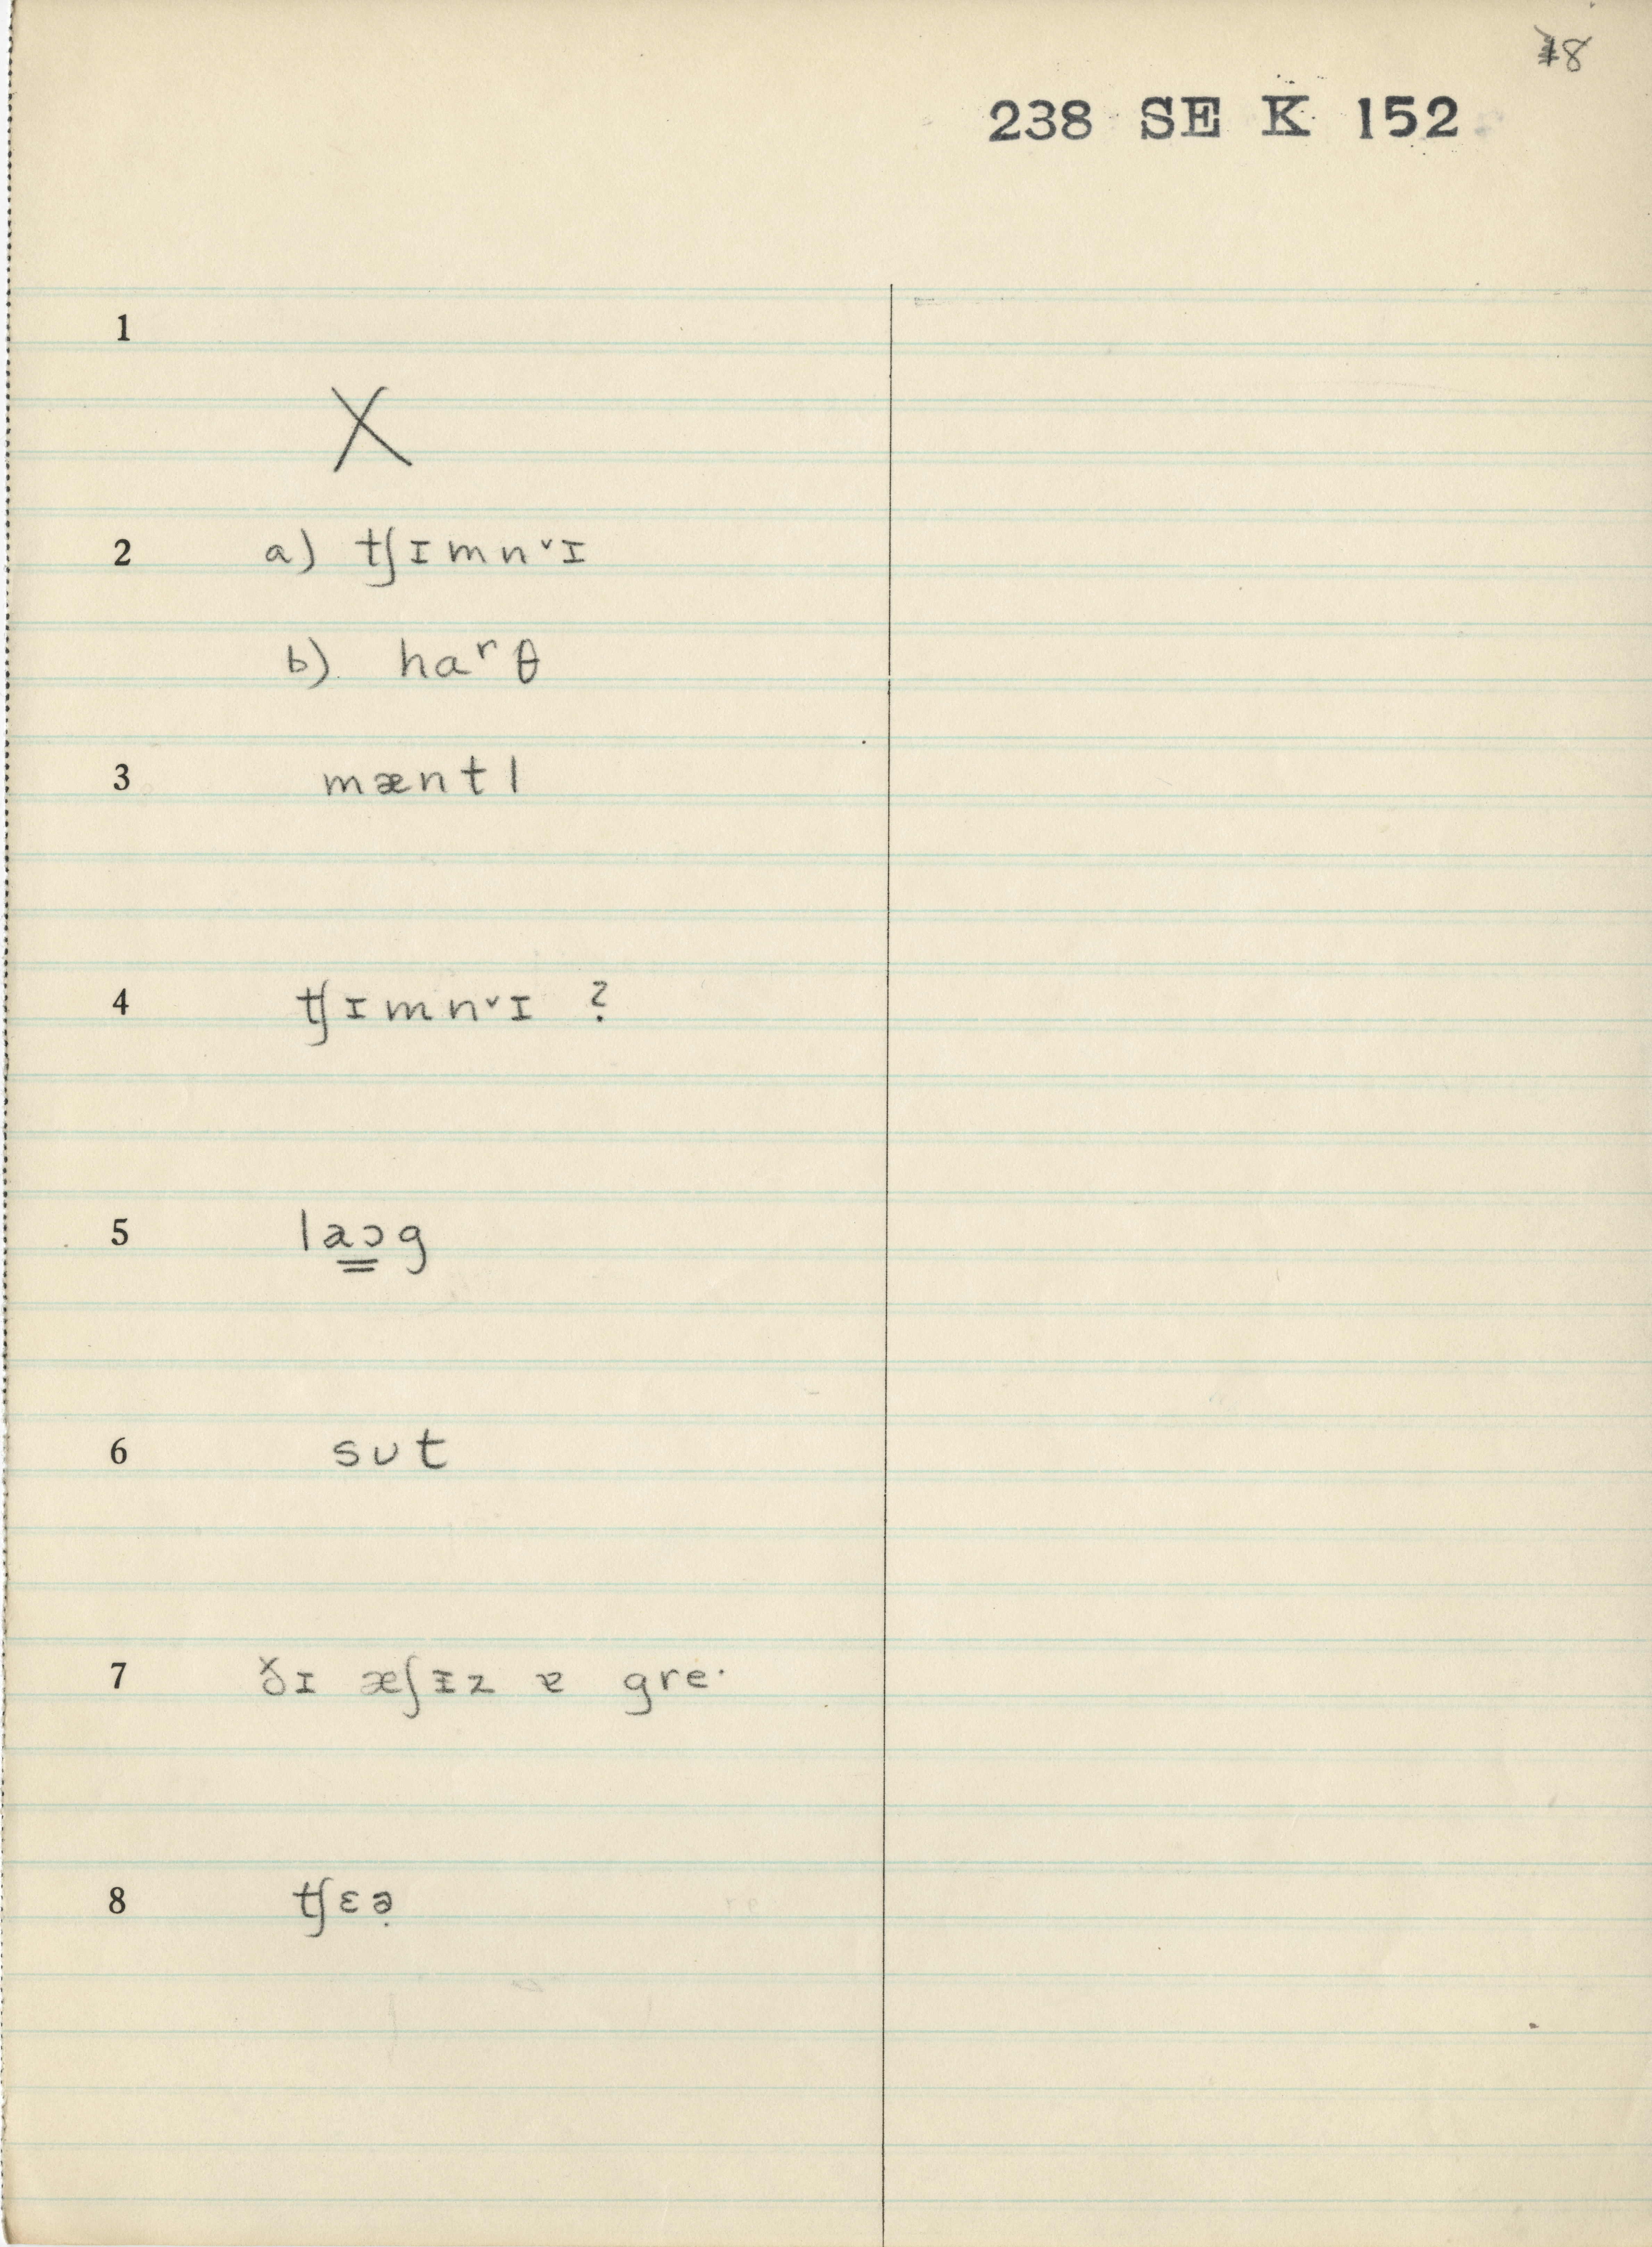 18
238 SE K 152
1
X
2 a) tʃɪmnˇɪ
b) haʳθ
3 mæntl
4 tʃɪmnˇɪ ?
5 laɔg
6 sʊt
7 ðɪ æʃɪz ɐ gre·
8 tʃɛə̣